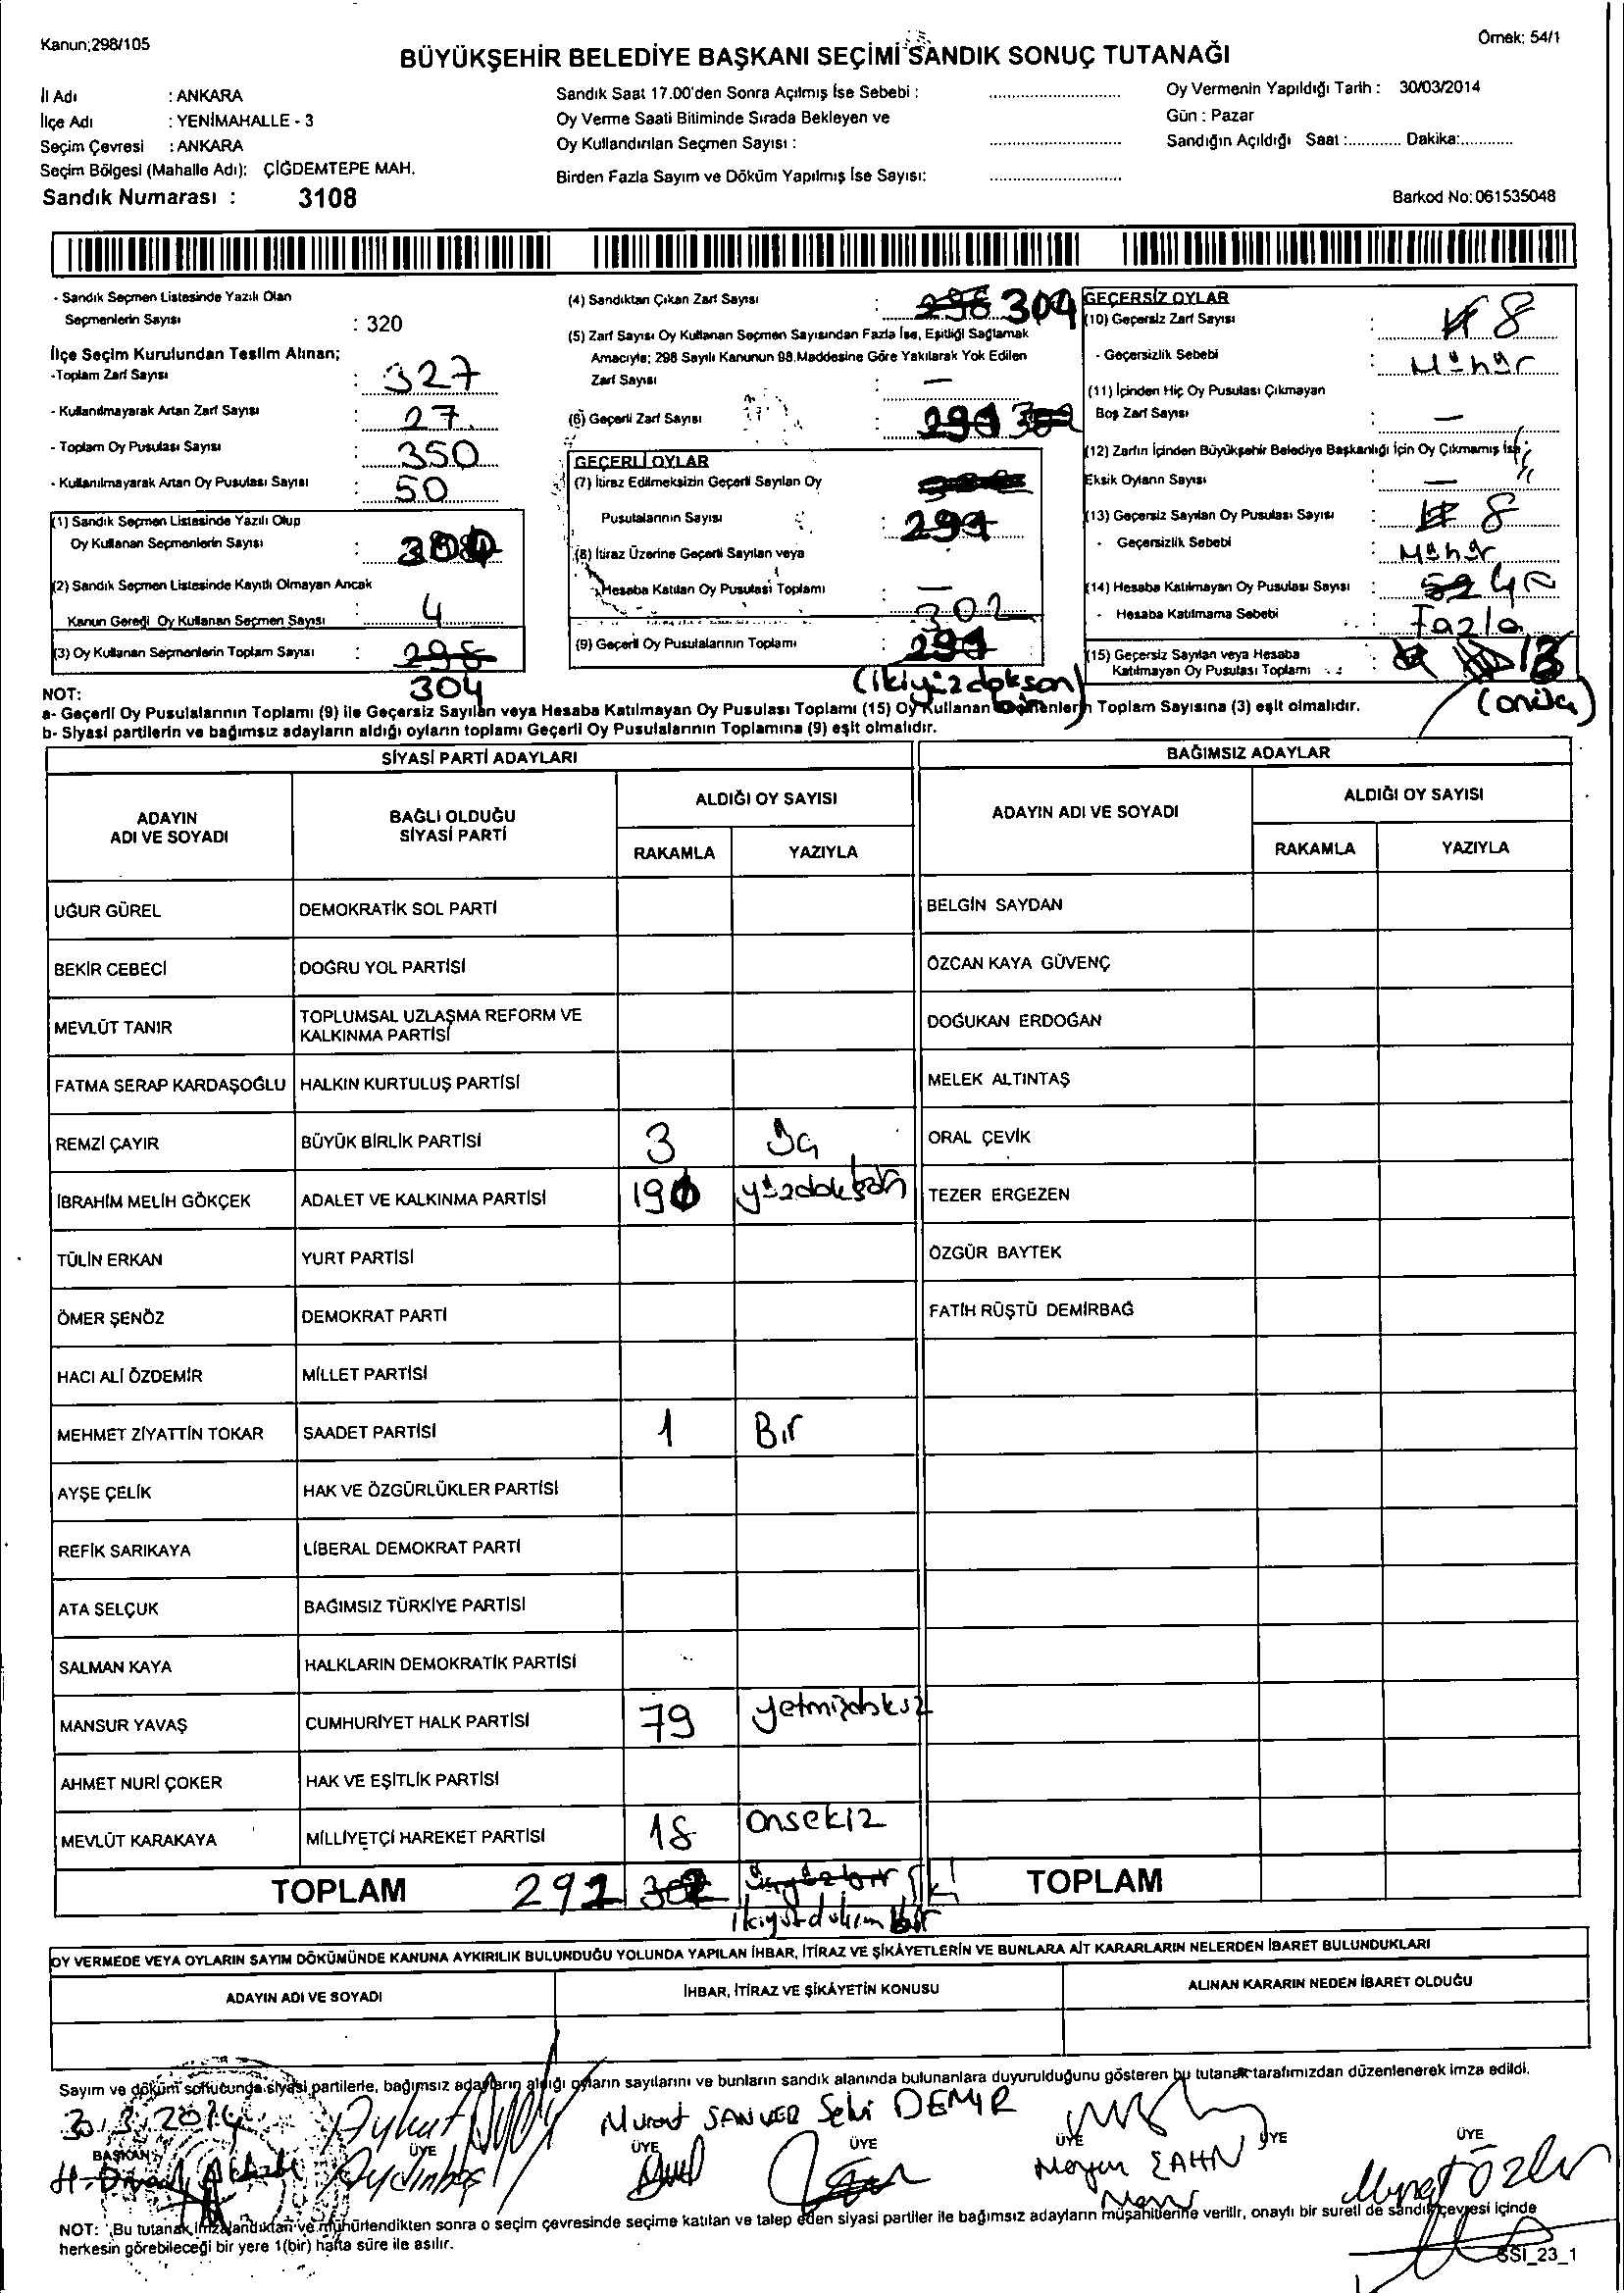 Kanun;298/105
Örnek: 54/1
BÜYÜKŞEHİR BELEDİYE BAŞKANI SEÇİMİ SANDIK SONUÇ TUTANAĞI
İl Adı : ANKARA
İlçe Adı : YENİMAHALLE - 3
Seçim Çevresi : ANKARA
Seçim Bölgesi (Mahalle Adı): ÇİĞDEMTEPE MAH.
Sandık Numarası : 3108
Sandık Saat 17.00'den Sonra Açılmış İse Sebebi :
Oy Verme Saati Bitiminde Sırada Bekleyen ve
Oy Kullandırılan Seçmen Sayısı :
Birden Fazla Sayım ve Döküm Yapılmış İse Sayısı:
Oy Vermenin Yapıldığı Tarih : 30/03/2014
Gün : Pazar
Sandığın Açıldığı Saat :............ Dakika:............
Barkod No: 061535048
- Sandık Seçmen Listesinde Yazılı Olan
Seçmenlerin Sayısı : 320
İlçe Seçim Kurulundan Teslim Alınan;
-Toplam Zarf Sayısı : 327
- Kullanılmayarak Artan Zarf Sayısı : 27
- Toplam Oy Pusulası Sayısı : 350
- Kullanılmayarak Artan Oy Pusulası Sayısı : 50
(1) Sandık Seçmen Listesinde Yazılı Olup
Oy Kullanan Seçmenlerin Sayısı :
(2) Sandık Seçmen Listesinde Kayıtlı Olmayan Ancak
Kanun Gereği Oy Kullanan Seçmen Sayısı 4
(3) Oy Kullanan Seçmenlerin Toplam Sayısı : 298
304
(4) Sandıktan Çıkan Zarf Sayısı : 298 304
(5) Zarf Sayısı Oy Kullanan Seçmen Sayısından Fazla İse, Eşitliği Sağlamak
Amacıyla; 298 Sayılı Kanunun 98.Maddesine Göre Yakılarak Yok Edilen
Zarf Sayısı : —
(6) Geçerli Zarf Sayısı :
GEÇERLİ OYLAR
(7) İtiraz Edilmeksizin Geçerli Sayılan Oy
Pusulalarının Sayısı :
(8) İtiraz Üzerine Geçerli Sayılan veya
Hesaba Katılan Oy Pusulası Toplamı : —
302
(9) Geçerli Oy Pusulalarının Toplamı :
(ikiyüzdokson)
GEÇERSİZ OYLAR
(10) Geçersiz Zarf Sayısı : 8
- Geçersizlik Sebebi : Mühür
(11) İçinden Hiç Oy Pusulası Çıkmayan
Boş Zarf Sayısı : —
(12) Zarfın İçinden Büyükşehir Belediye Başkanlığı İçin Oy Çıkmamış İse;
Eksik Oyların Sayısı : —
(13) Geçersiz Sayılan Oy Pusulası Sayısı : 8
- Geçersizlik Sebebi : Mühür
(14) Hesaba Katılmayan Oy Pusulası Sayısı :
- Hesaba Katılmama Sebebi : Fazla
(15) Geçersiz Sayılan veya Hesaba
Katılmayan Oy Pusulası Toplamı : 13
NOT:
a- Geçerli Oy Pusulalarının Toplamı (9) ile Geçersiz Sayılan veya Hesaba Katılmayan Oy Pusulası Toplamı (15) Oy Kullanan Seçmenlerin Toplam Sayısına (3) eşit olmalıdır.
b- Siyasi partilerin ve bağımsız adayların aldığı oyların toplamı Geçerli Oy Pusulalarının Toplamına (9) eşit olmalıdır.
SİYASİ PARTİ ADAYLARI
BAĞIMSIZ ADAYLAR
ADAYIN ADI VE SOYADI
BAĞLI OLDUĞU SİYASİ PARTİ
ALDIĞI OY SAYISI
RAKAMLA YAZIYLA
ADAYIN ADI VE SOYADI
ALDIĞI OY SAYISI
RAKAMLA YAZIYLA
UĞUR GÜREL DEMOKRATİK SOL PARTİ BELGİN SAYDAN
BEKİR CEBECİ DOĞRU YOL PARTİSİ ÖZCAN KAYA GÜVENÇ
MEVLÜT TANIR TOPLUMSAL UZLAŞMA REFORM VE KALKINMA PARTİSİ DOĞUKAN ERDOĞAN
FATMA SERAP KARDAŞOĞLU HALKIN KURTULUŞ PARTİSİ MELEK ALTINTAŞ
REMZİ ÇAYIR BÜYÜK BİRLİK PARTİSİ 3 Üç ORAL ÇEVİK
İBRAHİM MELİH GÖKÇEK ADALET VE KALKINMA PARTİSİ 190 yüzdokson TEZER ERGEZEN
TÜLİN ERKAN YURT PARTİSİ ÖZGÜR BAYTEK
ÖMER ŞENÖZ DEMOKRAT PARTİ FATİH RÜŞTÜ DEMİRBAĞ
HACI ALİ ÖZDEMİR MİLLET PARTİSİ
MEHMET ZİYATTİN TOKAR SAADET PARTİSİ 1 Bir
AYŞE ÇELİK HAK VE ÖZGÜRLÜKLER PARTİSİ
REFİK SARIKAYA LİBERAL DEMOKRAT PARTİ
ATA SELÇUK BAĞIMSIZ TÜRKİYE PARTİSİ
SALMAN KAYA HALKLARIN DEMOKRATİK PARTİSİ
MANSUR YAVAŞ CUMHURİYET HALK PARTİSİ 79
AHMET NURİ ÇOKER HAK VE EŞİTLİK PARTİSİ
MEVLÜT KARAKAYA MİLLİYETÇİ HAREKET PARTİSİ 18 onsekiz
TOPLAM 291 302 TOPLAM
OY VERMEDE VEYA OYLARIN SAYIM DÖKÜMÜNDE KANUNA AYKIRILIK BULUNDUĞU YOLUNDA YAPILAN İHBAR, İTİRAZ VE ŞİKÂYETLERİN VE BUNLARA AİT KARARLARIN NELERDEN İBARET BULUNDUKLARI
ADAYIN ADI VE SOYADI İHBAR, İTİRAZ VE ŞİKÂYETİN KONUSU ALINAN KARARIN NEDEN İBARET OLDUĞU
Sayım ve döküm sonucunda siyasi partilerle, bağımsız adayların aldığı oyların sayılarını ve bunların sandık alanında bulunanlara duyurulduğunu gösteren bu tutanak tarafımızdan düzenlenerek imza edildi.
30.3.2014 Aykut Murat SANVER Selvi DEMİR
BAŞKAN ÜYE ÜYE ÜYE ÜYE ÜYE ÜYE
NOT: Bu tutanak imzalandıktan ve mühürlendikten sonra o seçim çevresinde seçime katılan ve talep eden siyasi partiler ile bağımsız adayların müşahitlerine verilir, onaylı bir sureti de sandık çevresi içinde
herkesin görebileceği bir yere 1(bir) hafta süre ile asılır.
SSI_23_1